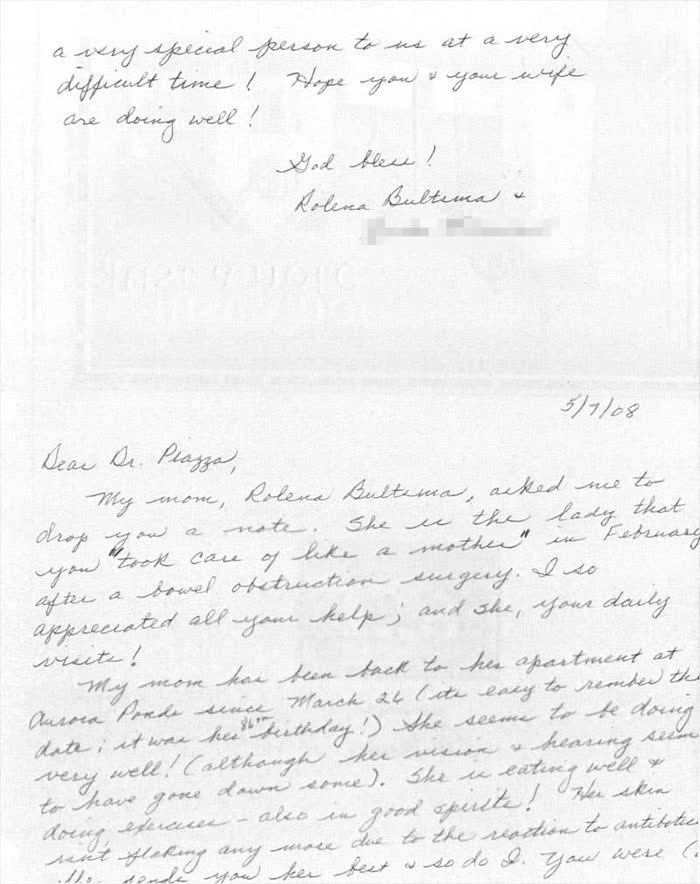 a very special person to us at a very
difficult time! Hope you & your wife
are doing well!
God bless!
Rolena Bultema &
5/7/08
Dear Dr. Piazza,
My mom, Rolena Bultema, asked me to
drop you a note. She is the lady that
you "took care of like a mother" in February
after a bowel obstruction surgery. I so
appreciated all your help; and she, your daily
visits!
My mom has been back to her apartment at
Aurora Ponds since March 26 (its easy to rember the
date; it was her 86th birthday!) She seems to be doing
very well! (although her vision & hearing seem
to have gone down some). She is eating well &
doing exercises - also in good spirits! Her skin
isn't flaking any more due to the reaction to antibotics
sends you her best & so do I. You were (